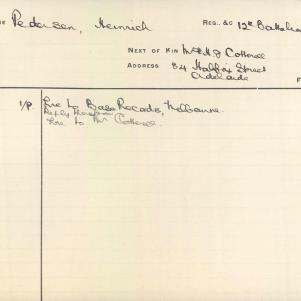 Pedersen, Heinrich
REG. &c 12th Battalion
NEXT OF KIN Mr H J Cotterell
ADDRESS 84 Halifax Street
Adelaide
1/P. Line to Base Records, Melbourne
Reply therefrom
Line to Mr Cotterell